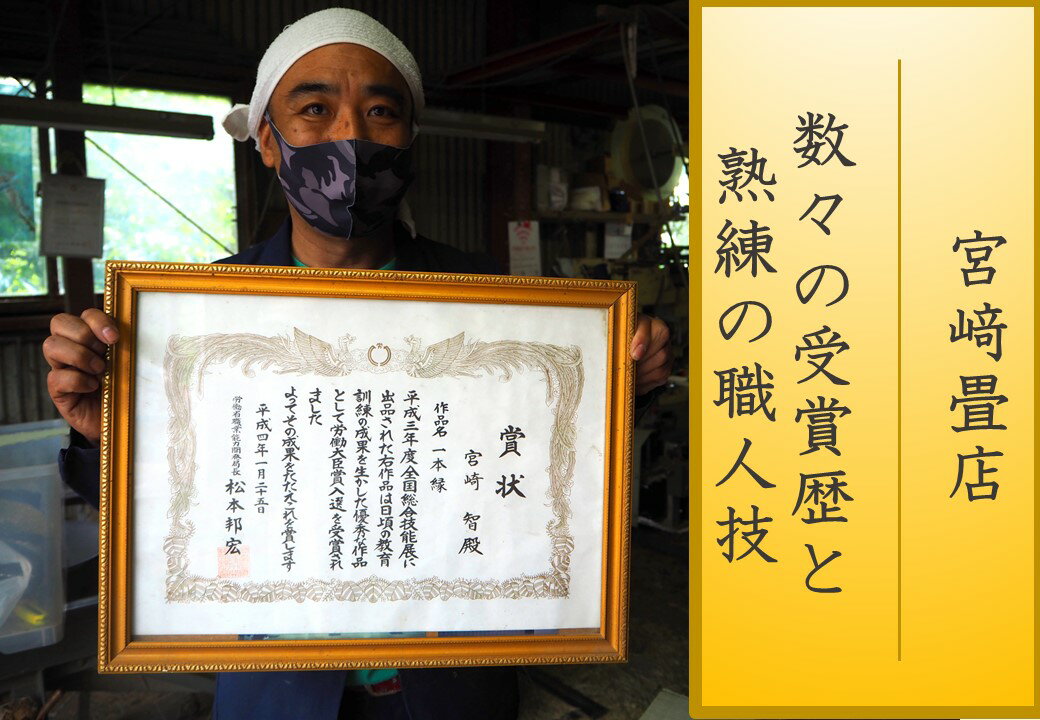 宮﨑畳店
数々の受賞歴と
熟練の職人技
賞状
宮崎 智殿
作品名 一本縁
平成三年度全国総合技能展に
出品された右作品は日頃の教育
訓練の成果を生かした優秀な作品
として労働大臣賞入選を受賞され
ました
よってその成果をたたえこれを賞します
平成四年一月二十五日
労働省職業能力開発局長 松本邦宏